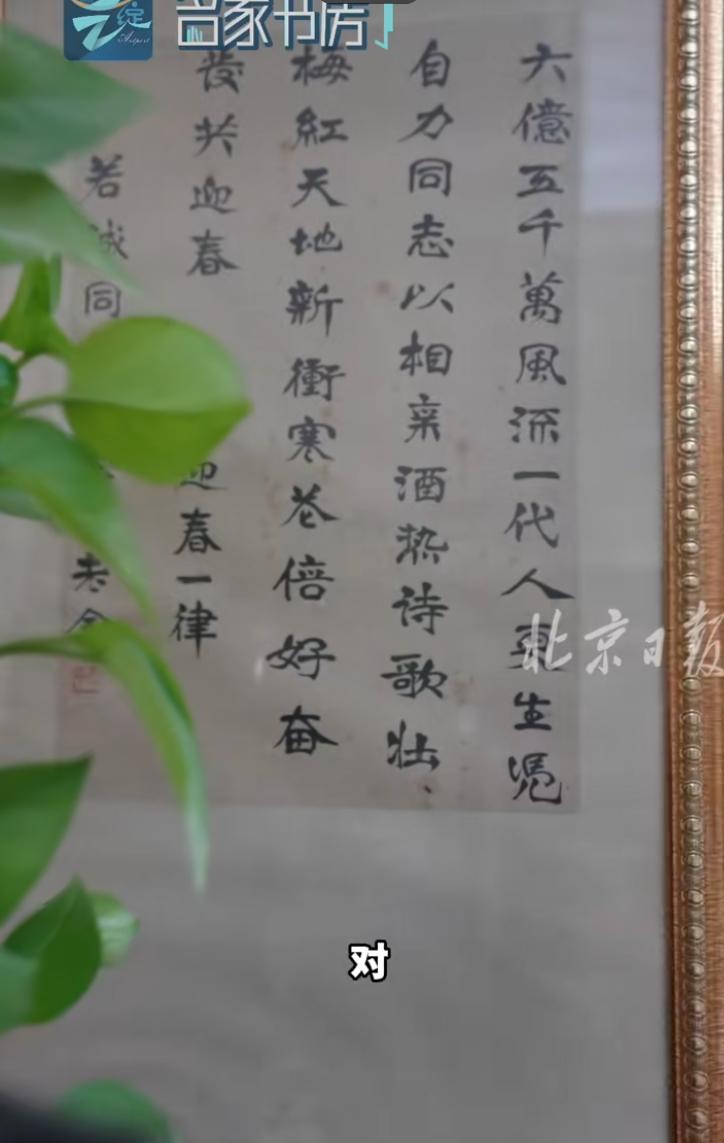 名家书房
六億五千萬風流一代人更生憑
自力同志以相亲酒热诗歌壮
梅紅天地新衝寒花倍好奋
發共迎春
迎春一律
若誠同
老舍
北京日报
对